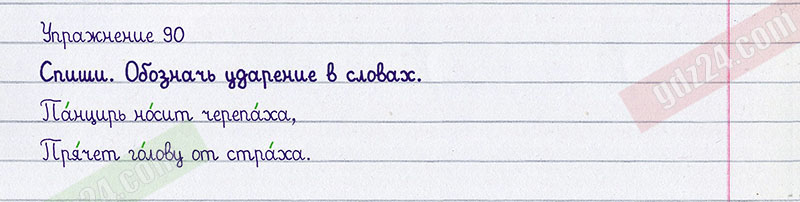 Упражнение 90
Спиши. Обозначь ударение в словах.
Па́нцирь но́сит черепа́ха,
Пря́чет го́лову от стра́ха.
gdz24.com
gdz24.com